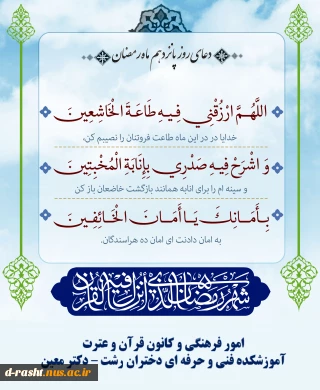 دعای روز پانزدهم ماه رمضان
اللَّهُمَّ ارْزُقْنِي فِيهِ طَاعَةَ الْخَاشِعِينَ
خدایا در در این ماه طاعت فروتنان را نصیبم کن،
وَ اشْرَحْ فِيهِ صَدْرِي بِإِنَابَةِ الْمُخْبِتِينَ
و سینه ام را برای انابه همانند بازگشت خاضعان باز کن
بِأَمَانِكَ يَا أَمَانَ الْخَائِفِينَ
به امان دادنت ای امان ده هراسندگان.
شهر رمضان الذی انزل فیه القرآن
امور فرهنگی و کانون قرآن و عترت
آموزشکده فنی و حرفه ای دختران رشت - دکتر معین
d-rasht.nus.ac.ir